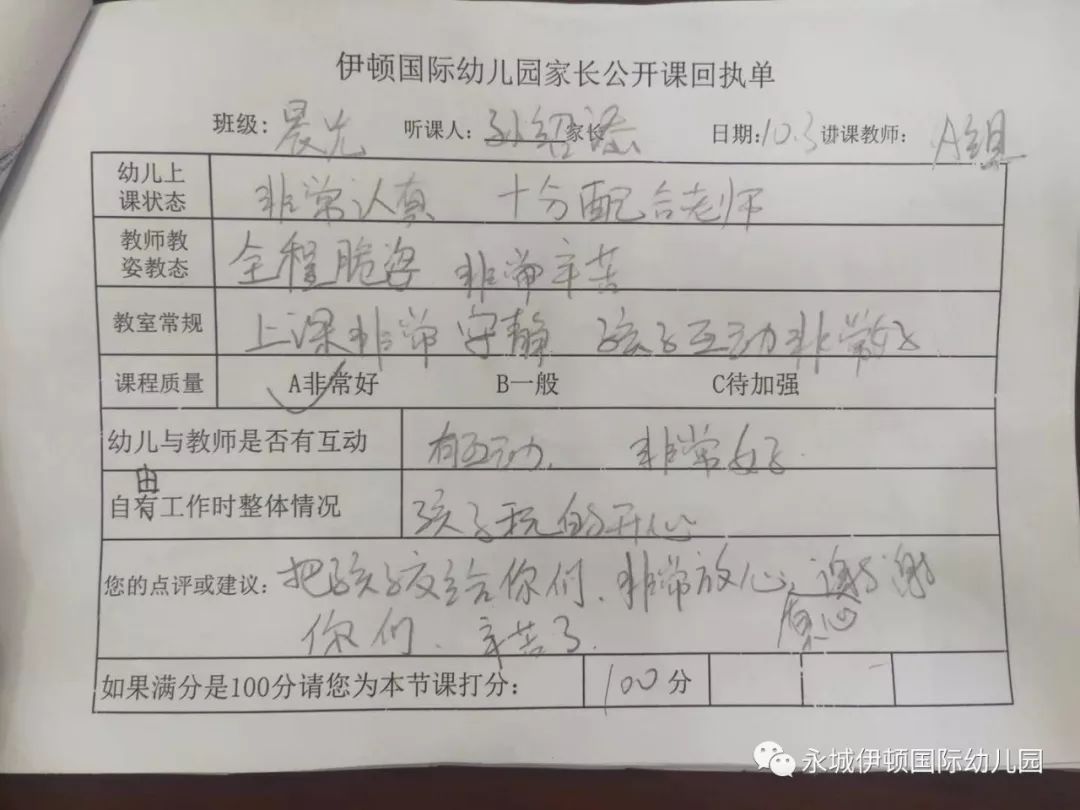 伊顿国际幼儿园家长公开课回执单
班级:晨光 听课人:孙绍语家长 日期:10.3 讲课教师:A组
幼儿上课状态 非常认真 十分配合老师
教师教姿教态 全程脆姿 非常辛苦
教室常规 上课非常安静 孩子互动非常好
课程质量 A非常好 B一般 C待加强
幼儿与教师是否有互动 有互动. 非常好.
由
自有工作时整体情况 孩子玩的开心
您的点评或建议:把孩子交给你们、非常放心、谢谢
你们、辛苦了. 真心
如果满分是100分请您为本节课打分: 100分
永城伊顿国际幼儿园